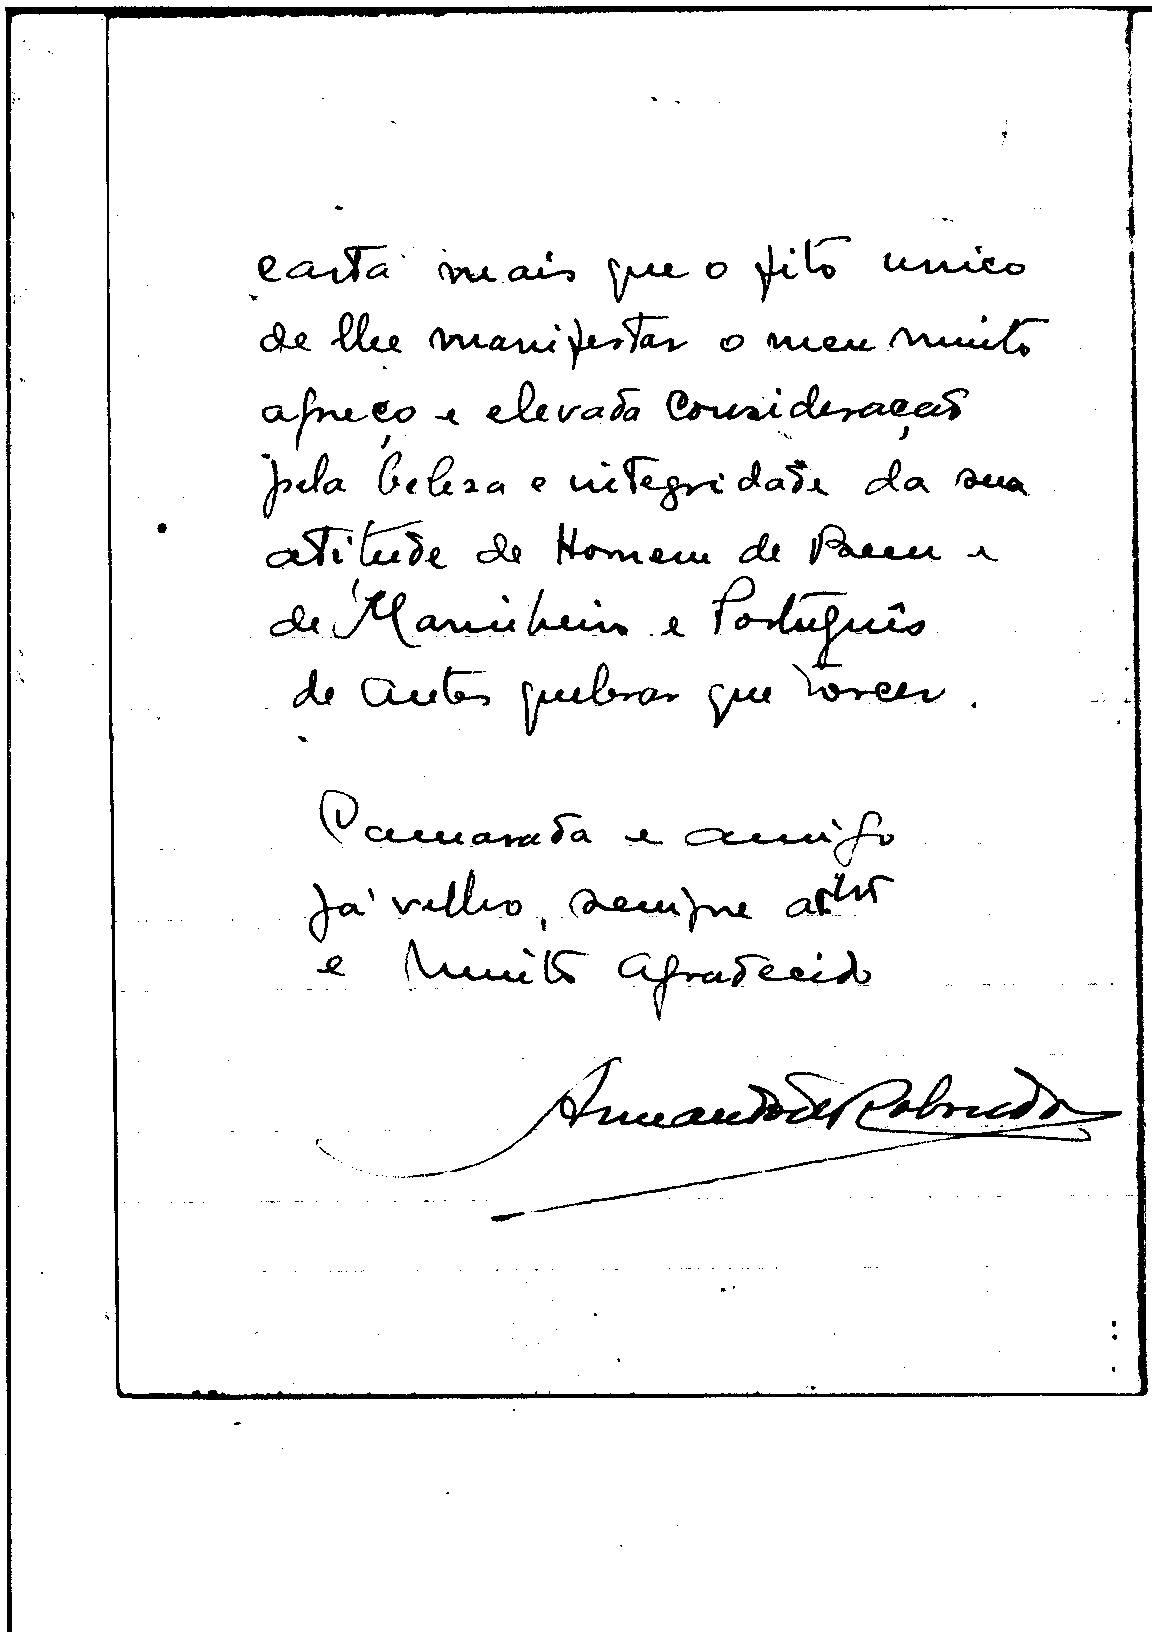 carta mais que o fito unico
de lhe manifestar o meu muito
apreço e elevada consideração
pela beleza e integridade da sua
atitude de Homem de Bem e
de Marinheiro e Português
de antes quebrar que torcer.
Camarada e amigo
já velho, sempre attº
e muito agradecido
Armando de Roboredo